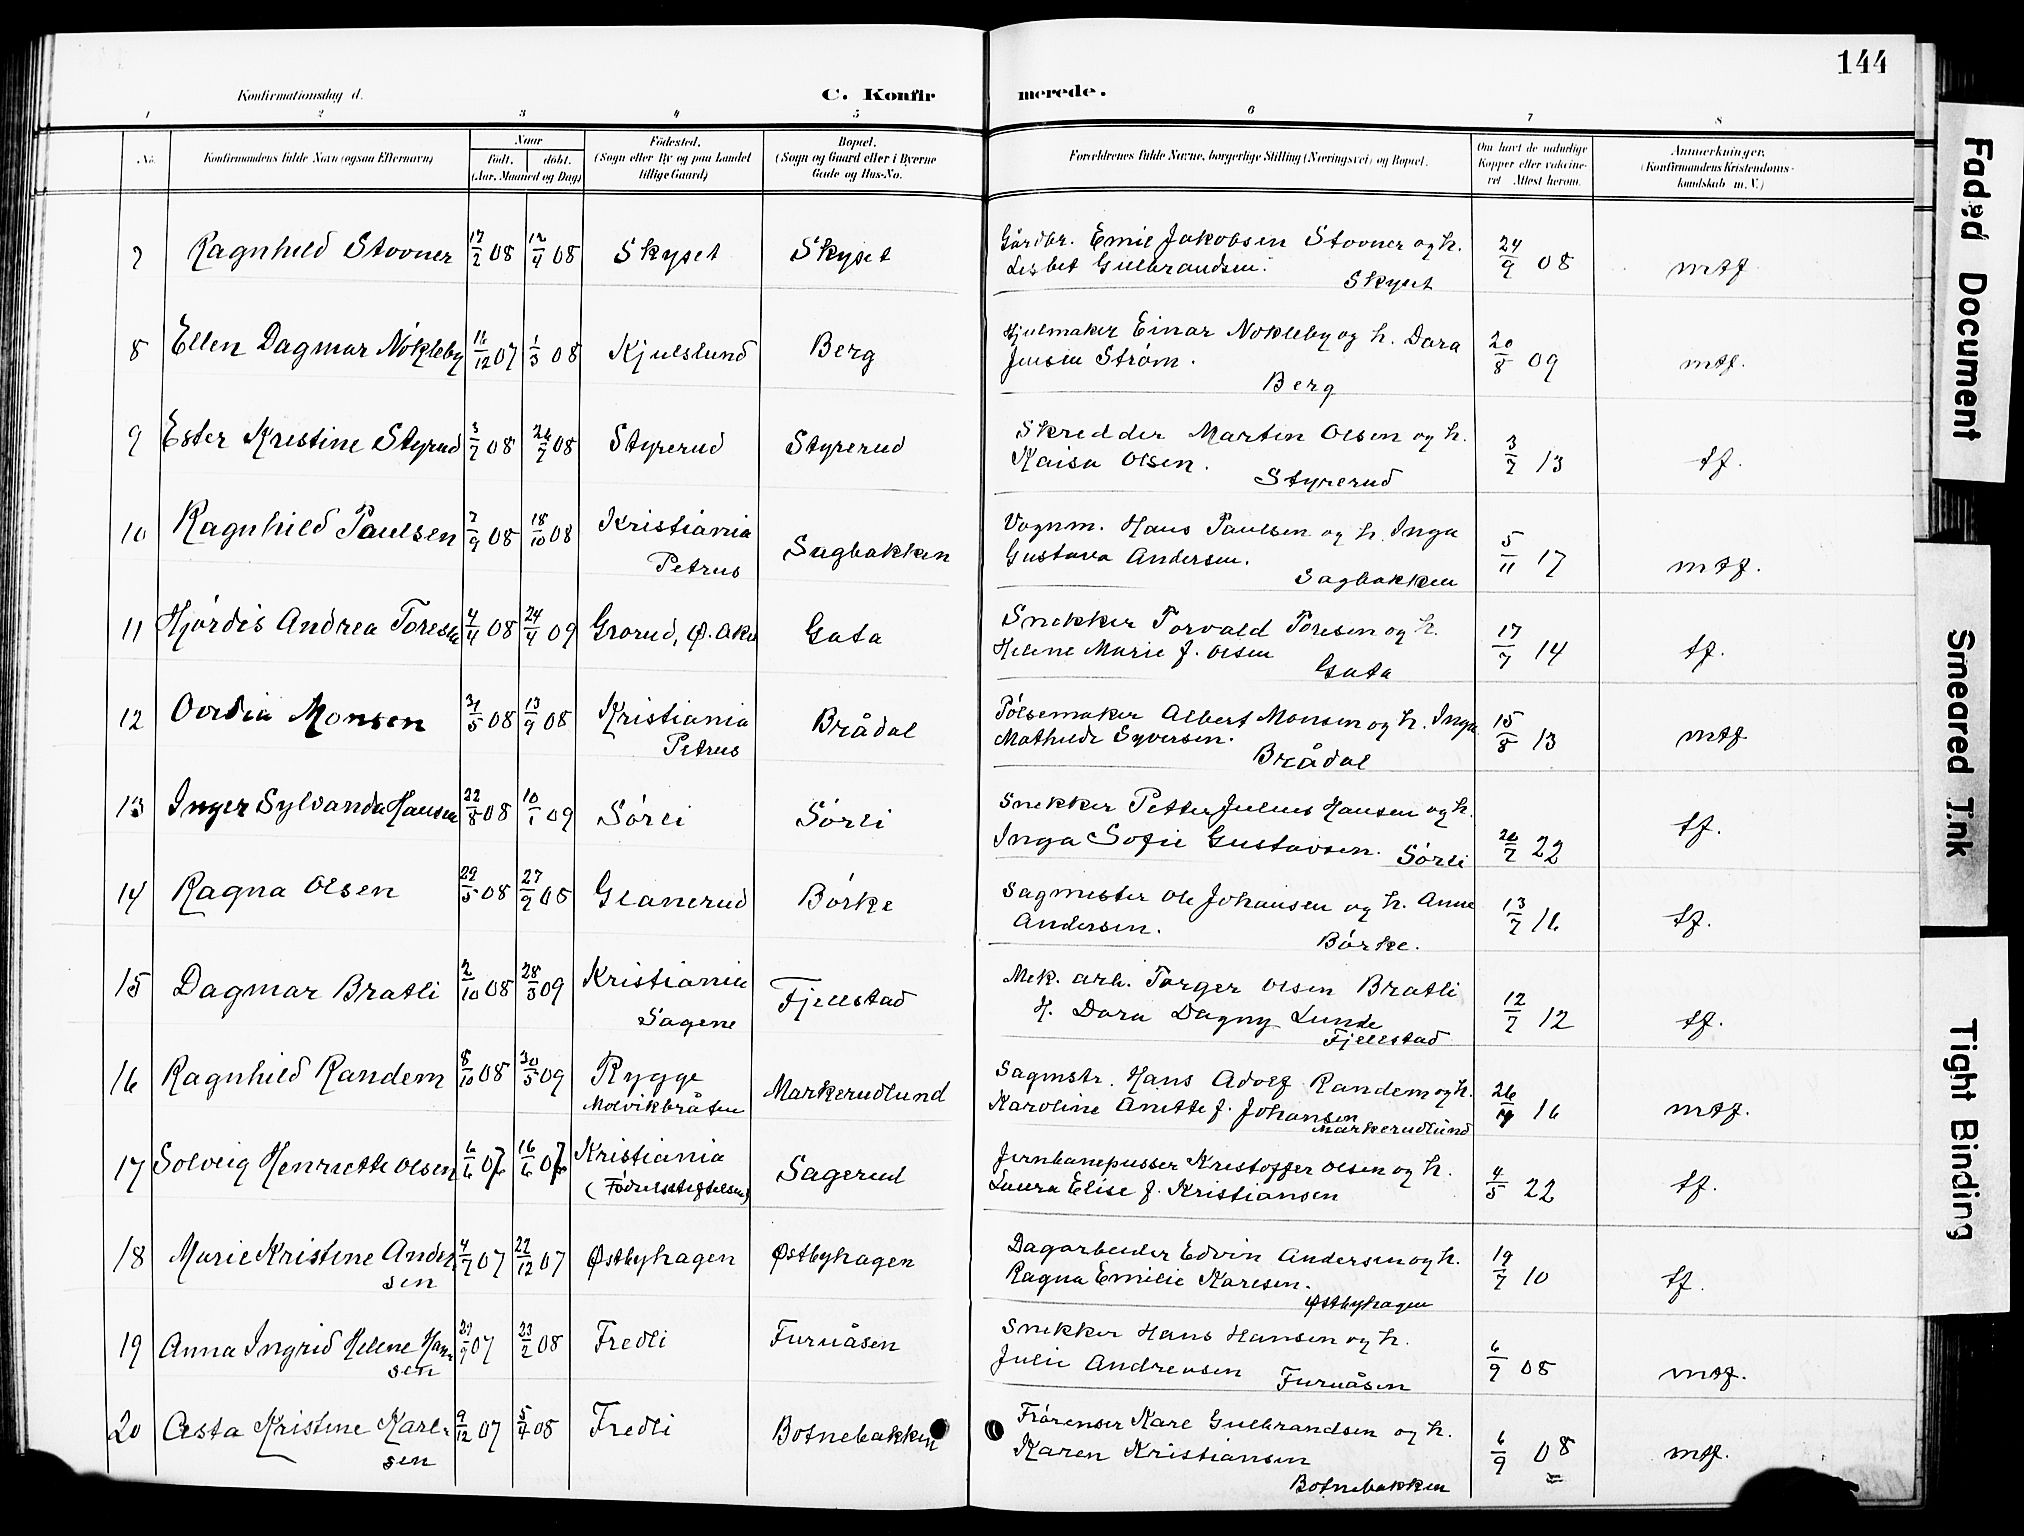 144
Konfirmationsdag d.
C. Konfir
merede.
1 2 3 4 5 6 7 8
No.
Konfirmandens fulde Navn (ogsaa Efternavn)
Naar
født. døbt.
(Aar, Maaned og Dag)
Fødested.
(Sogn eller By og paa Landet
tillige Gaard)
Bopæl.
(Sogn og Gaard eller i Byerne
Gade og Hus-No.
Forældrenes fulde Navne, borgerlige Stilling (Næringsvei) og Bopæl.
Om havt de naturlige
Kopper eller vakcine-
ret Attest herom.
Anmerkninger.
(Konfirmandens Kristendoms-
kundskab m. V.)
7 Ragnhild Stovner 17/2 08 12/4 08 Skyset Skyset Gårdbr. Emil Jakobsen Stovner og h.
Lisbet Gulbrandsen. Skyset 24/9 08 mtf
8 Ellen Dagmar Nökleby 16/12 07 1/3 08 Kjulslund Berg Hjulmaker Einar Nökleby og h. Dora
Jensen Strøm. Berg 20/8 09 mtf.
9 Ester Kristine Styrud 3/7 08 26/7 08 Styrerud Styrerud Skredder Martin Olsen og h.
Kaisa Olsen. Styrerud 3/7 13 tf.
10 Ragnhild Paulsen 7/9 08 18/10 08 Kristiania
Petrus Sagbakken Vognm. Hans Paulsen og h. Inga
Gustava Andersen. Sagbakken 5/11 17 mtf.
11 Hjördis Andrea Toresen 4/4 08 24/4 09 Grorud, Ø. Aker Gata Snekker Torvald Toresen og h.
Helene Marie f. Olsen Gata 17/7 14 tf.
12 Ovidia Monsen 31/5 08 13/9 08 Kristiania
Petrus Brådal Pölsemaker Albert Monsen og h. Inga
Mathilde Syversen. Brådal 15/8 13 mtf
13 Inger Sylvanda Hansen 22/8 08 10/1 09 Sörli Sörli Snekker Petter Julius Hansen og h.
Inga Sofie Gustavsen. Sörli 26/7 22 tf.
14 Ragna Olsen 29/5 08 27/9 08 Glanerud Börke Sagmester Ole Johansen og h. Anne
Andersen. Börke. 13/7 16 tf.
15 Dagmar Bratli 2/10 08 28/3 09 Kristiania
Sagene Fjellstad Mek. arb. Torger Olsen Bratli
H. Dora Dagny Lunde
Fjellstad 12/7 12 tf.
16 Ragnhild Randem 8/10 08 30/5 09 Rygge
Molvikbråten Markerudlund Sagmstr. Hans Adolf Randem og h.
Karoline Anette f. Johansen
Markerudlund 26/7 16 mtf.
17 Solveig Henriette Olsen 6/6 07 16/6 07 Kristiania
(Födselsstiftelsen) Sagerud Jernbanepusser Kristoffer Olsen og h.
Laura Elise f. Kristiansen 4/5 22 tf.
18 Marie Kristine Ander
sen 4/7 07 22/12 07 Østbyhagen Østbyhagen Dagarbeider Edvin Andersen og h.
Ragna Emilie Karlsen.
Østbyhagen 19/7 10 tf.
19 Anna Ingrid Helene Han
sen 29/9 07 23/2 08 Fredli Furuåsen Snekker Hans Hansen og h.
Julie Andreasen Furuåsen 6/9 08 mtf.
20 Asta Kristine Karl-
sen 9/12 07 5/4 08 Fredli Botnebakken Frörenser Karl Gulbrandsen og h.
Karen Kristiansen
Botnebakken 6/9 08 mtf.
Faded Document
Smeared Ink
Tight Binding